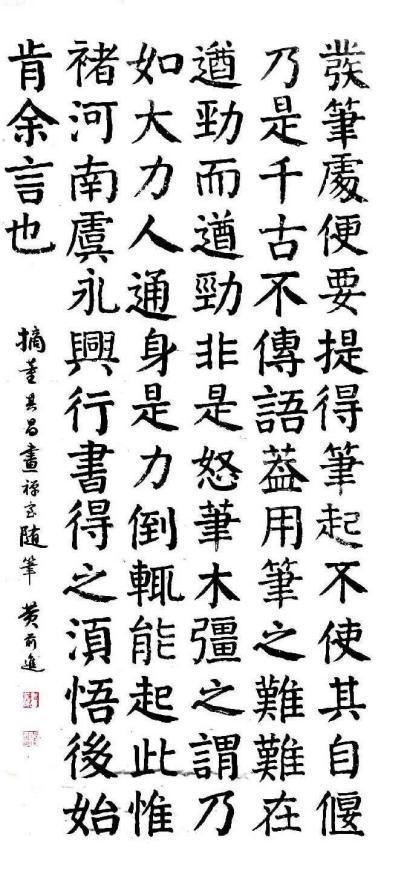 發筆處便要提得筆起不使其自偃
乃是千古不傳語葢用筆之難難在
遒勁而遒勁非是怒筆木彊之謂乃
如大力人通身是力倒輒能起此惟
褚河南虞永興行書得之湏悟後始
肯余言也
摘董其昌畫禪室隨筆 黄前進